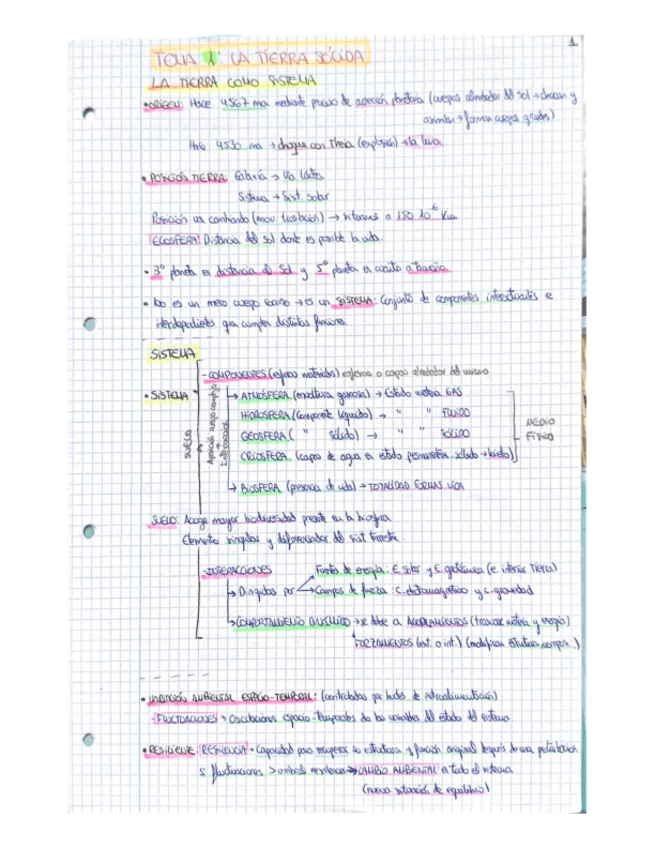 1
TEMA 1: LA TIERRA SÓLIDA
LA TIERRA COMO SISTEMA
• ORIGEN: Hace 4567 ma mediante proceso de acreción planetaria (cuerpos alrededor del sol → chocan y
asimilan → forman cuerpos grandes)
Hace 4530 ma → choque con Theia (explosión) → la luna
• POSICIÓN TIERRA: Galaxia → Vía Láctea
Sistema → Sist. solar
Posición va cambiando (mov. traslación) → situamos a 150 10⁻⁶ Km
ECOSFERA: Distancia del sol donde es posible la vida.
• 3º planeta en distancia al Sol y 5º planeta en cuanto a tamaño.
• No es un mero cuerpo rocoso → es un SISTEMA: Conjunto de componentes interactuantes e
interdependientes que cumplen distintas funciones.
SISTEMA
- COMPONENTES (esferas materiales) esferas o capas alrededor del núcleo
• SISTEMA
→ ATMÓSFERA (envoltura gaseosa) → Estado materia GAS
HIDROSFERA (componente líquido) → " " FLUIDO
GEOSFERA ( " sólido) → " " SÓLIDO
CRIOSFERA (capas de agua en estado permanente sólido → hielo)
MEDIO
FÍSICO
SUELO
Aparición cuerpo complejo
INTERACCIONA
→ BIOSFERA (presencia de vida) → TOTALIDAD FORMAS VIDA
SUELO: Acoge mayor biodiversidad presente en la biosfera
Elemento singular y diferenciador del sist. terrestre
INTERACCIONES
Fuentes de energía: E. solar y E. geotérmica (e. interior Tierra)
→ Dirigidas por → Campos de fuerza: C. electromagnético y c. gravedad
→ COMPORTAMIENTO DINÁMICO → se debe a ACOPLAMIENTOS (transfer. materia y energía)
FORZAMIENTOS (ext. o int.) (modifican estructura compor..)
• VARIACIÓN AMBIENTAL ESPACIO-TEMPORAL: (controladas por bucles de retroalimentación)
- FLUCTUACIONES → Oscilaciones espacio-temporales de las variables del estado del sistema
• RESILIENTE: RESILIENCIA = Capacidad para recuperar su estructura y función original después de una perturbación
Si fluctuaciones > umbral resiliencia → CAMBIO AMBIENTAL a todo el sistema
(nueva situación de equilibrio)